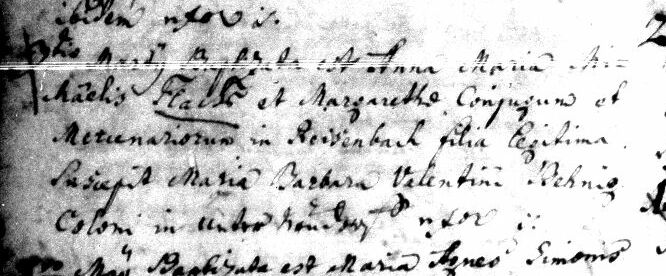 ibidem uxor
Martÿ Baptizata est Anna Maria Mi=
Maelis Flach et Margarethe Conjugum et
Mercenariorum in Reissenbach filia legitima
Suscepit Maria Barbara Valentini
Coloni in uxor
Maÿ Baptizata est Maria Agnes Simonis